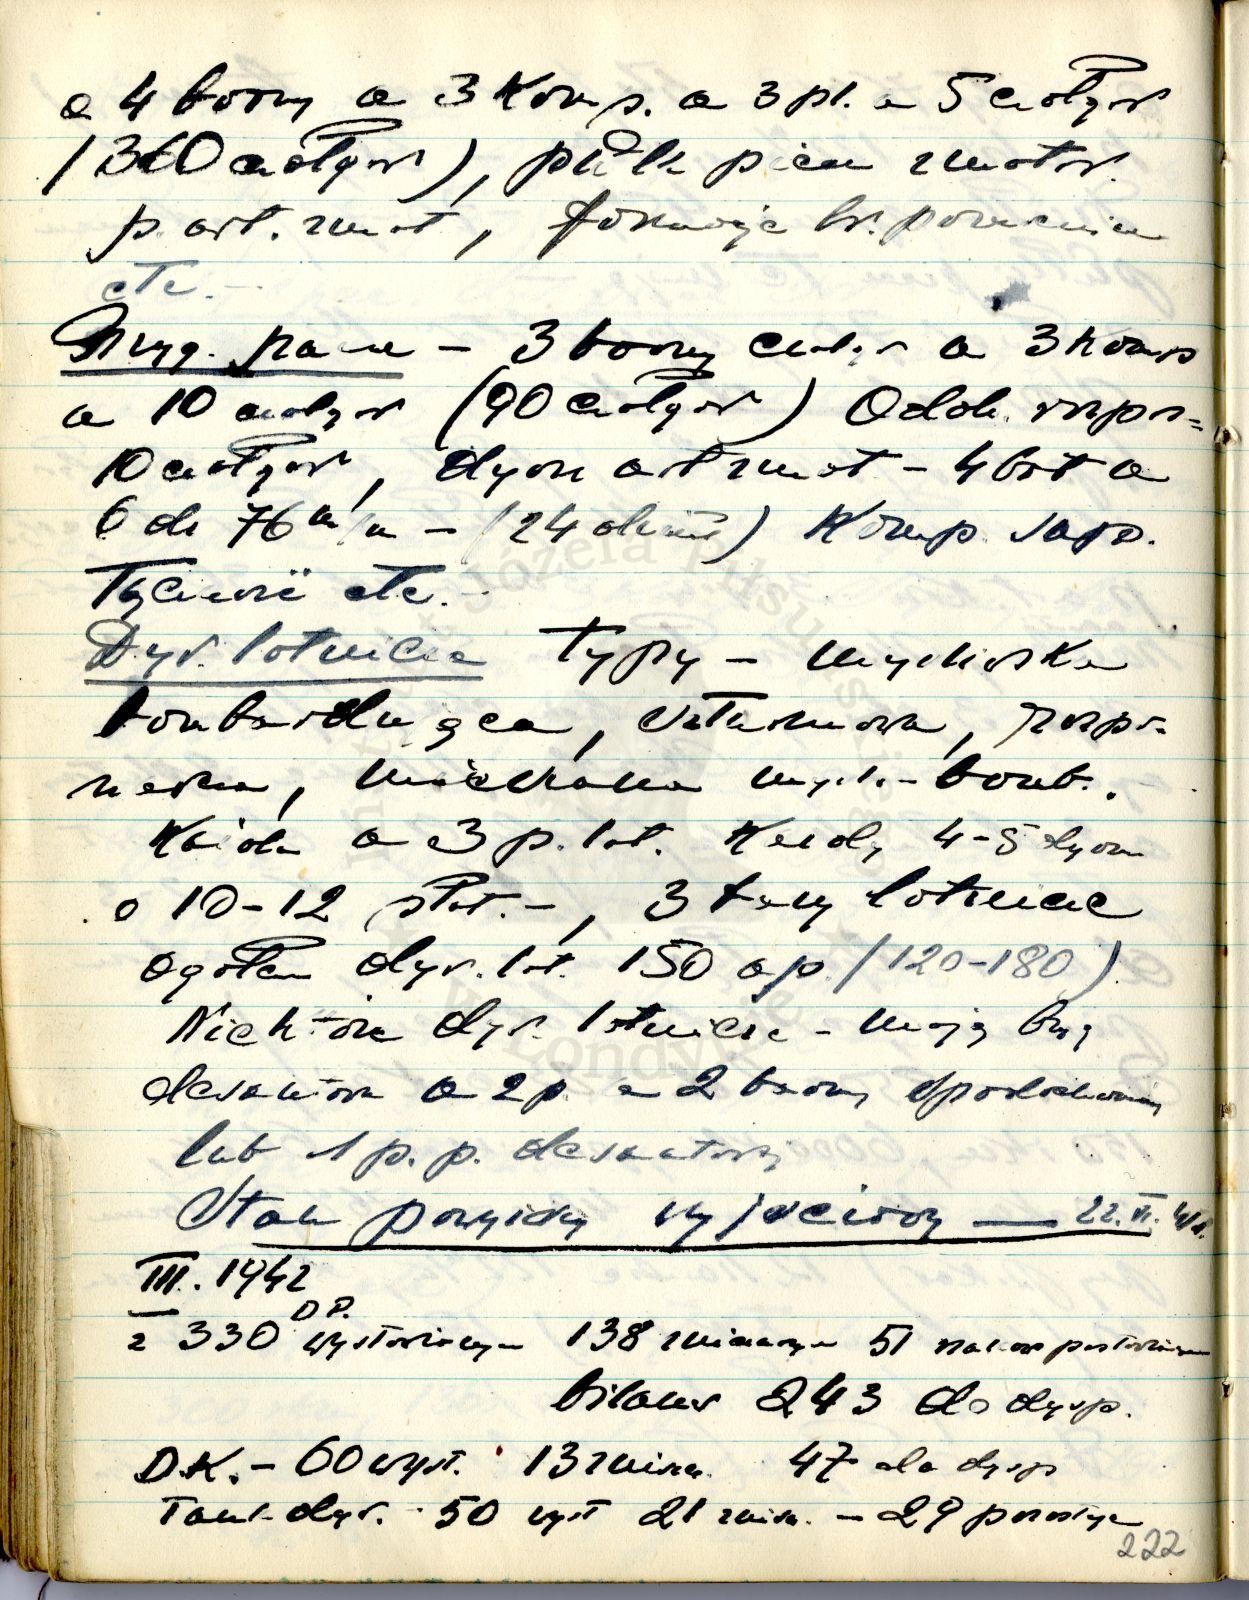 a 4 baony a 3 Komp. a 3 pl. a 5 czołgów
(360 czołgów), pułk piech zmotor.
p. art. zmot, formacje br. pancernia
etc. -
Bryg. panc - 3 baony czołgów a 3 Komp
a 10 czołgów (90 czołgów) Oddz. rozpo-
10 czołgów, dyon art zmot - 4 bat a
6 dz 76 m/m - (24 dział) Komp. sap.
łączność etc. -
Dyw. lotnicza typy - myśliwska
bombardująca, szturmowa, rozpo-
znawcza, mieszana myśl. - bomb.
Każda a 3 p. lot. Każdy 4-5 dyon
a 10-12 płat. -, 3 bazy lotnicze
ogółem dyw. lot. 150 ap. (120-180)
Niektóre dyw. lotnicze - mają bryg
desantów a 2 p. a 2 baony spadochronowy
lub 1 p. p. desantowy
Stan powyższy wyjściowy — 22. VI. 41 r.
III. 1942
z 330 D.P. wystawionych 138 zniszczonych 51
bilans 243 do dysp.
D.K. - 60 wyst. 13 zniszcz. 47 do dysp
Tank-dyw. - 50 wyst 21 znisz. - 29 pozostaje
222
Instytut Józefa Piłsudskiego
w Londynie